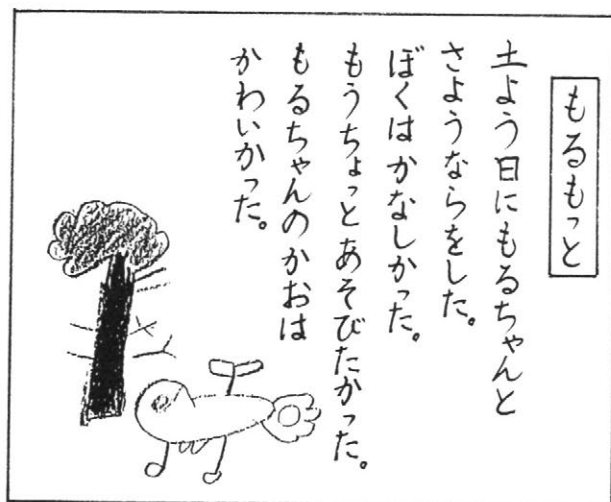 もるもっと
土よう日にもるちゃんと
さようならをした。
ぼくはかなしかった。
もうちょっとあそびたかった。
もるちゃんのかおは
かわいかった。